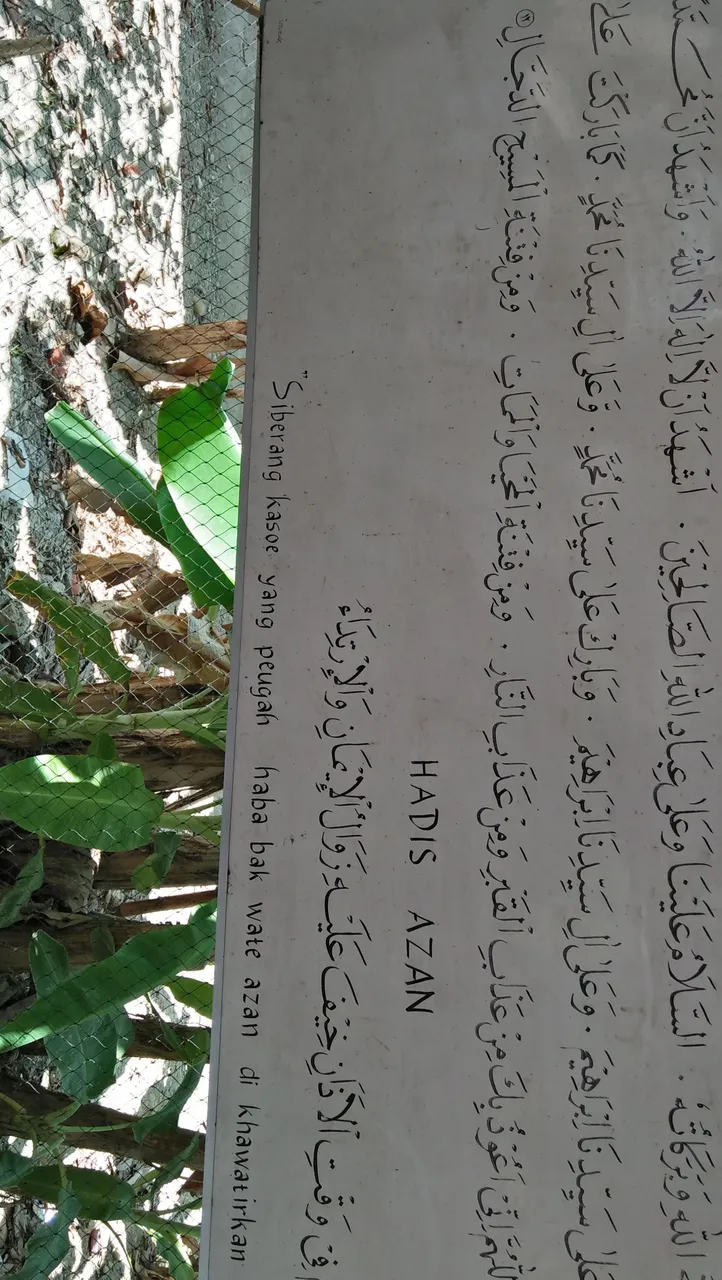 اللهِ وَبَرَكَاتُهُ . اَلسَّلَامُ عَلَيْنَا وَعَلَى عِبَادِ اللهِ الصَّالِحِيْنَ . اَشْهَدُ اَنْ لَا اِلٰهَ اِلَّا اللهُ . وَاَشْهَدُ اَنَّ
عَلَى سَيِّدِنَا اِبْرَاهِيْمَ . وَعَلَى اٰلِ سَيِّدِنَا اِبْرَاهِيْمَ . وَبَارِكْ عَلَى سَيِّدِنَا مُحَمَّدٍ . وَعَلَى اٰلِ سَيِّدِنَا مُحَمَّدٍ . كَمَا بَارَكْتَ عَلَى
اِنِّى اَعُوْذُ بِكَ مِنْ عَذَابِ الْقَبْرِ وَمِنْ عَذَابِ النَّارِ . وَمِنْ فِتْنَةِ الْمَحْيَا وَالْمَمَاتِ . وَمِنْ فِتْنَةِ الْمَسِيْحِ الدَّجَّالِ
HADIS AZAN
فِى وَقْتِ الْاَذَانِ خِيْفَ عَلَيْهِ زَوَالُ الْإِيْمَانِ وَالْإِرْتِدَاءُ
"Siberang kasoe yang peugah haba bak wate azan di khawatirkan